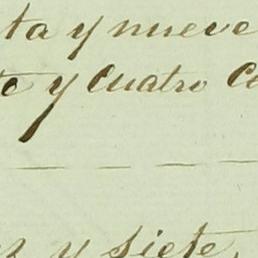 ta y nueve
te y Cuatro Ce
ez y siete,